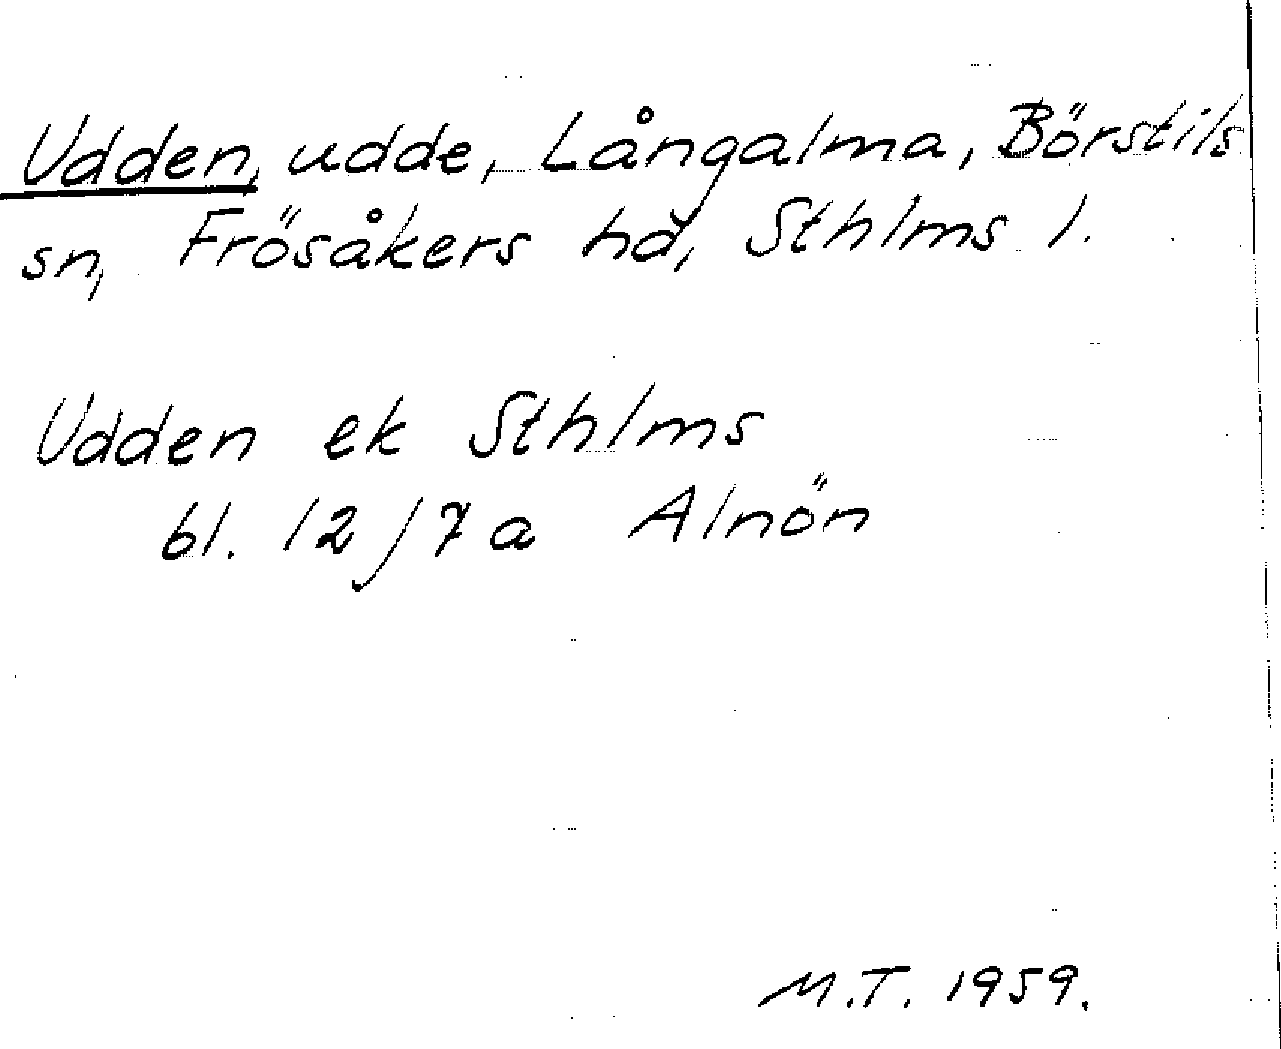 Udden, udde, Långalma, Börstils
sn, Frösåkers hd, Sthlms l.
Udden ek Sthlms
bl. 12/7a Alnön
M.T. 1959.